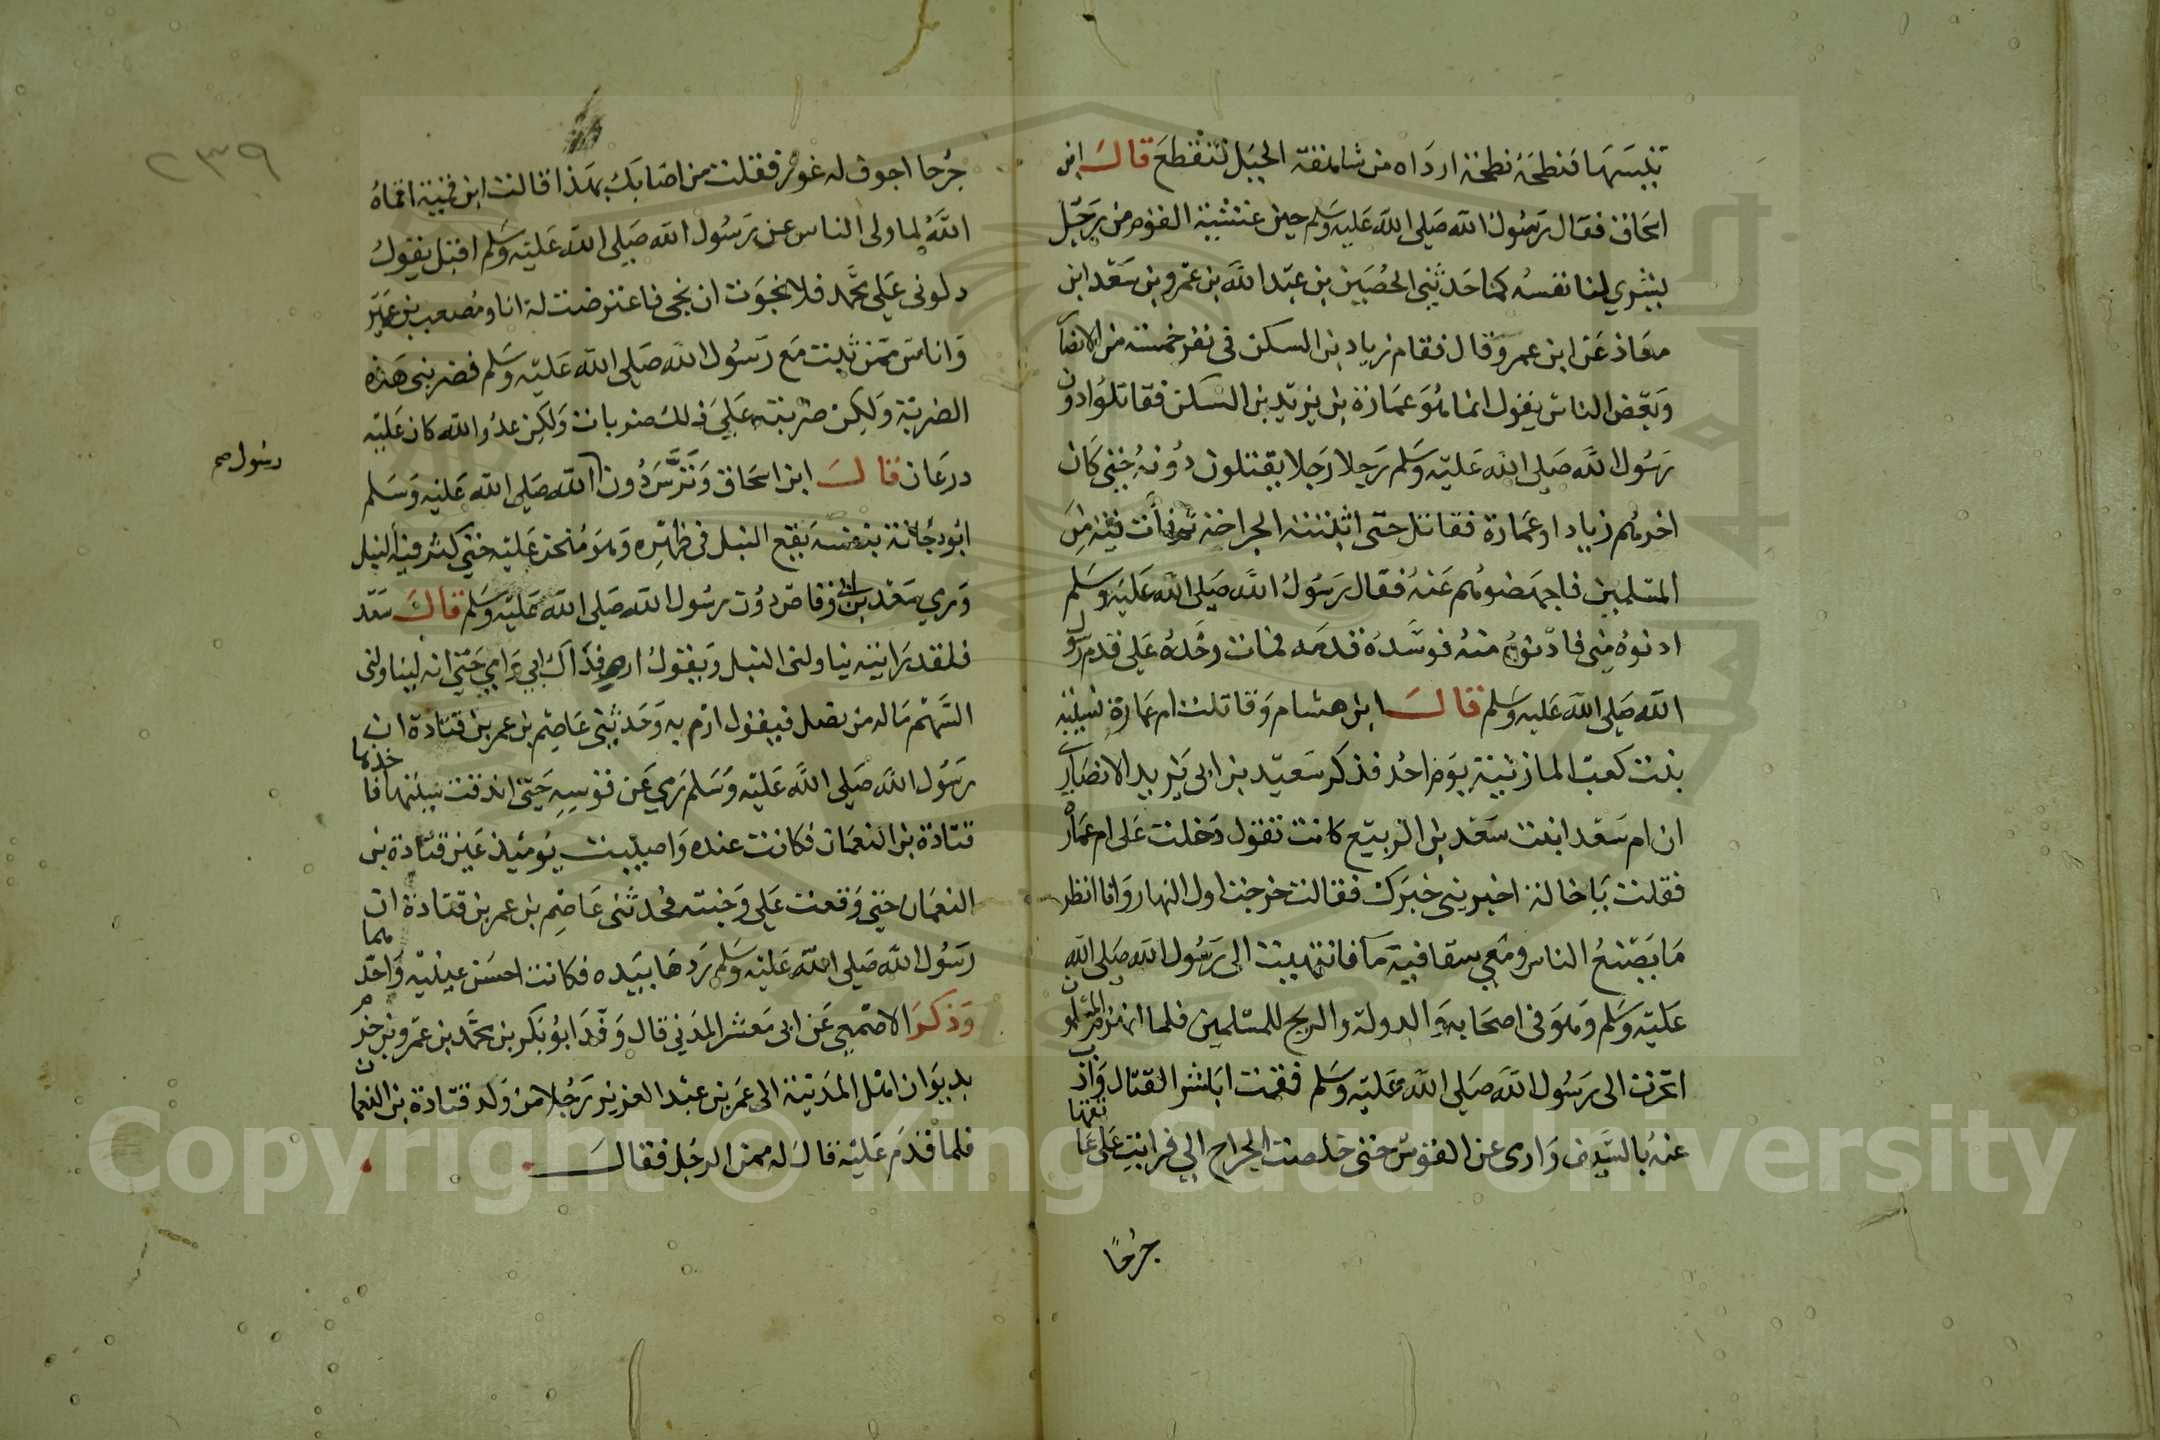 تيسها فنطحه نطحة ارداه من شاهقة الجبل فتقطع قال ابن
اسحاق فقال رسول الله صلى الله عليه وسلم حين غشيه القوم من رجل
يشري لنا نفسه كما حدثني الحصين بن عبد الله بن عمرو بن سعد ابن
معاذ عن ابن عمرو قال فقام زياد بن السكن في نفر خمسة من الانصار
وبعض الناس يقول انما هو عمارة بن يزيد بن السكن فقاتلوا دون
رسول الله صلى الله عليه وسلم رجلا رجلا يقتلون دونه حتى كان
اخرهم زياد او عمارة فقاتل حتى اثبتته الجراحة ثم فأت فئة من
المسلمين فاجهضوهم عنه فقال رسول الله صلى الله عليه وسلم
ادنوه مني فادنوه منه فوسده قدمه فمات وخده على قدم رسول
الله صلى الله عليه وسلم قال ابن هشام وقاتلت ام عمارة نسيبة
بنت كعب المازنية يوم احد فذكر سعيد بن ابي يزيد الانصاري
ان ام سعد ابنت سعد بن الربيع كانت تقول دخلت على ام عمارة
فقلت يا خالة اخبريني خبرك فقالت خرجت اول النهار وانا انظر
ما يصنع الناس ومعي سقا فيه ما فانتهيت الى رسول الله صلى الله
عليه وسلم وهو في اصحابه والدولة والريح للمسلمين فلما انهزم المسلمون
انحزت الى رسول الله صلى الله عليه وسلم فقمت اباشر القتال واذب
عنه بالسيف وارى عن القوس حتى خلصت الجراح الي فرايت على عاتقها
جرحًا
٢٣٩
جرحا اجوف له غور فقلت من اصابك بهذا قالت ابن قمية اقماه
الله لما ولى الناس عن رسول الله صلى الله عليه وسلم اقبل يقول
دلوني على محمد فلا نجوت ان نجى فاعترضت له انا ومصعب بن عمير
واناس ممن ثبت مع رسول الله صلى الله عليه وسلم فضربني هذه
الضربة ولكن ضربته على ذلك ضربات ولكن عدو الله كان عليه
درعان قال ابن اسحاق وترس دون الله صلى الله عليه وسلم
رسول صح
ابو دجانة بنفسه يقع النبل في ظهره وهو منحن عليه حتى كثر فيه النبل
ورمي سعد بن ابي وقاص دون رسول الله صلى الله عليه وسلم قال سعد
فلقد رايته يناولني النبل ويقول ارم فداك ابي وامي حتى انه ليناولني
السهم ماله من نصل فيقول ارم به وحدثني عاصم بن عمر بن قتادة ان
رسول الله صلى الله عليه وسلم رمي عن قوسه حتى اندقت سيتها فاخذها
قتادة بن النعمان فكانت عنده واصيبت يوميذ عين قتادة بن
النعمان حتى وقعت على وجنته فحدثني عاصم بن عمر بن قتادة ان
رسول الله صلى الله عليه وسلم ردها بيده فكانت احسن عينيه واحدهما
وذكر الاصمعي عن ابي معشر المدني قال وفد ابو بكر بن محمد بن عمرو بن حزم
بديوان اهل المدينة الى عمر بن عبد العزيز رجلا من ولد قتادة بن النعمان
فلما قدم عليه قال له ممن الرجل فقال
Copyright © King Saud University